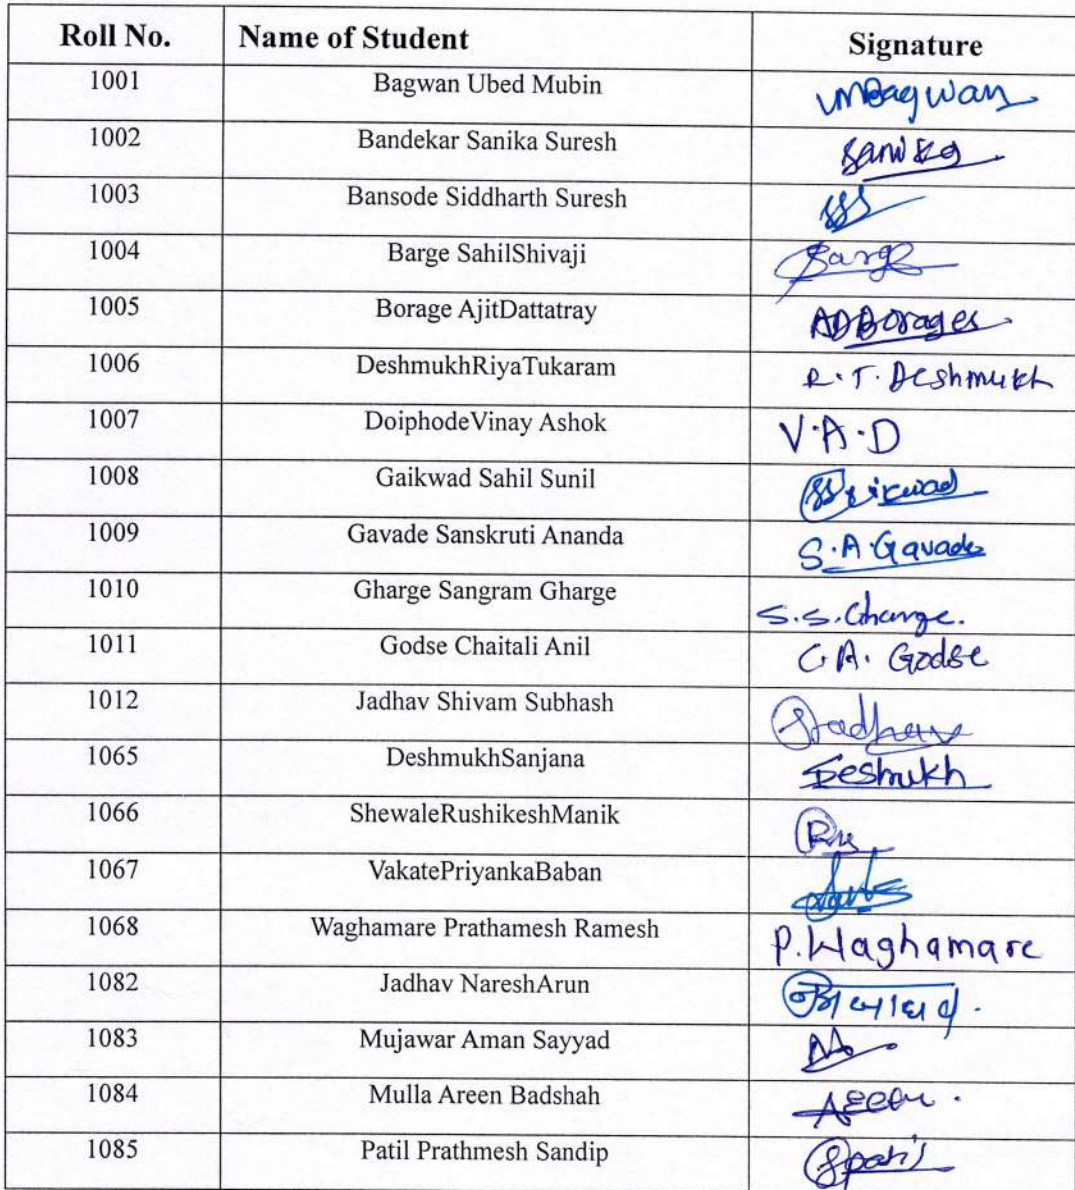 Roll No. Name of Student Signature
1001 Bagwan Ubed Mubin UMBagwan
1002 Bandekar Sanika Suresh Sanika
1003 Bansode Siddharth Suresh SSS
1004 Barge SahilShivaji Barge
1005 Borage AjitDattatray ADBorages
1006 DeshmukhRiyaTukaram R.T. Deshmukh
1007 DoiphodeVinay Ashok V.A.D
1008 Gaikwad Sahil Sunil
1009 Gavade Sanskruti Ananda S.A.Gavade
1010 Gharge Sangram Gharge S.S.Gharge.
1011 Godse Chaitali Anil C.A. Godse
1012 Jadhav Shivam Subhash Jadhav
1065 DeshmukhSanjana Deshmukh
1066 ShewaleRushikeshManik
1067 VakatePriyankaBaban
1068 Waghamare Prathamesh Ramesh P.Waghamare
1082 Jadhav NareshArun
1083 Mujawar Aman Sayyad
1084 Mulla Areen Badshah Areen.
1085 Patil Prathmesh Sandip Spatil